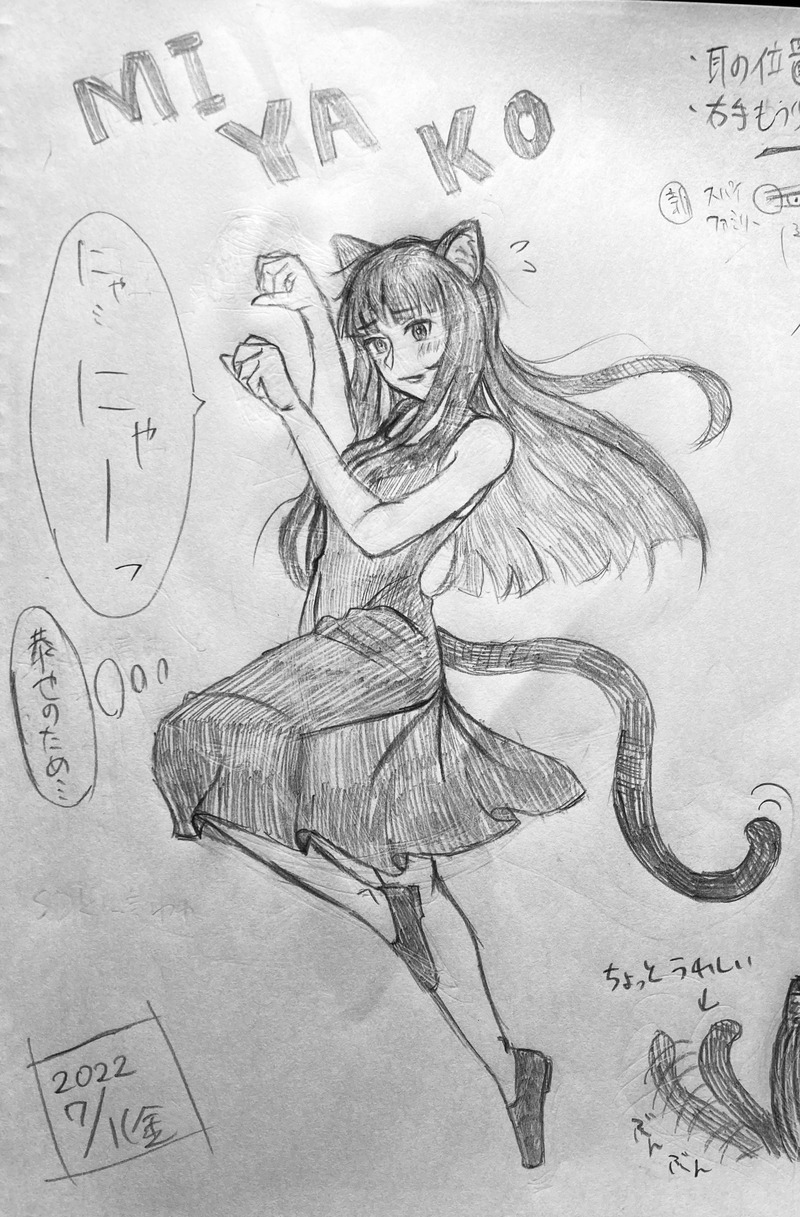 MIYAKO
・耳の位置
・右手もう少
スパイ
ファミリー
にゃ
にゃーっ
恭也のため…
ちょっとうれしい
↓
ぶん
ぶん
2022
7/1(金)